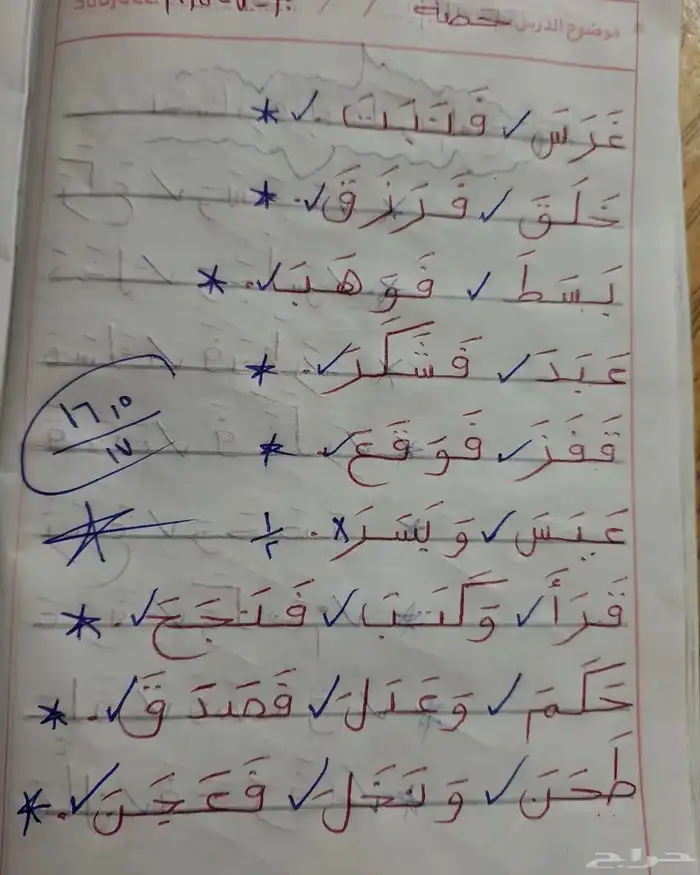 موضوع الدرس خطية
غَرَسَ فَنَبَتَ.
خَلَقَ فَرَزَقَ.
بَسَطَ فَوَهَبَ.
عَبَدَ فَشَكَرَ.
قَفَزَ فَوَقَعَ.
١٦,٥
١٧
عَبَسَ وَبَسَرَ. ١/٢
قَرَأَ وَكَتَبَ فَنَجَحَ.
حَكَمَ وَعَدَلَ فَصَدَقَ.
طَحَنَ وَنَخَلَ فَعَجَنَ.
حراج